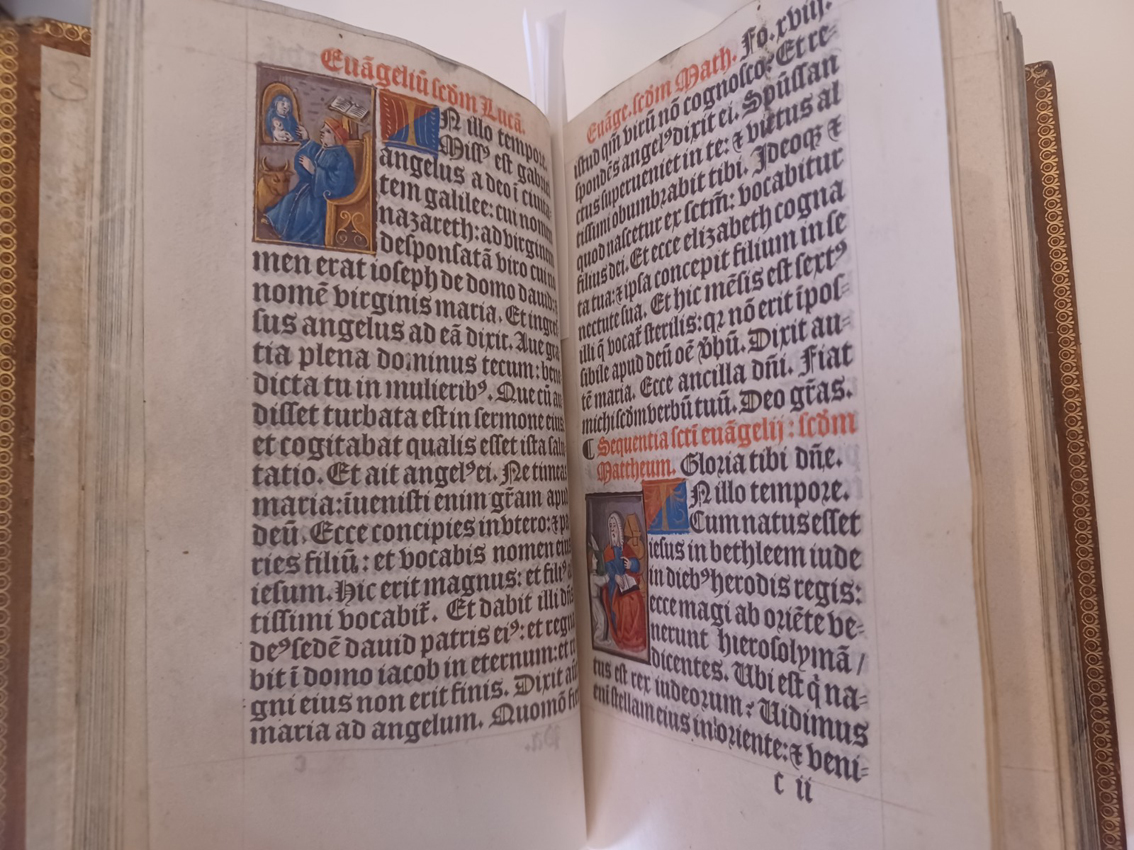 Euāgeliū scďm Lucā.
IN illo tempore.
Missꝰ est gabriel
angelus a deo ī ciuita
tem galilee: cui nomen
nazareth: ad virginem
desponsatā viro cui no
men erat ioseph de domo dauid: et
nomē virginis maria. Et ingres
sus angelus ad eā dixit. Aue gra
tia plena dominus tecum: bene
dicta tu in mulieribꝰ. Que cū au
disset turbata est in sermone eius
et cogitabat qualis esset ista salu
tatio. Et ait angelꝰ ei. Ne timeas
maria: īuenisti enim gr̄am apud
deū. Ecce concipies in vtero: ⁊ pa
ries filiū: et vocabis nomen eius
iesum. Hic erit magnus: et filiꝰ al
tissimi vocabit̄. Et dabit illi dn̄s
deꝰ sedē dauid patris eiꝰ: et regna
bit ī domo iacob in eternum: et re
gni eius non erit finis. Dixit aūt
maria ad angelum. Quomō fiet
Euāge. scďm Math. Fo. xviij.
istud qm̄ virū nō cognosco? Et re-
spondēs angelꝰ dixit ei. Spūssan
ctus superueniet in te: ⁊ virtus al
tissimi obumbrabit tibi. Ideoqꝫ ⁊
quod nascetur ex sctm̄: vocabitur
filius dei. Et ecce elizabeth cogna
ta tua: ⁊ ipsa concepit filium in se
nectute sua. Et hic mēsis est sextꝰ
illi q̄ vocat̄ sterilis: qꝛ nō erit īpos-
sibile apud deū oē v̄bū. Dixit au-
tē maria. Ecce ancilla dn̄i. Fiat
michi scďm verbū tuū. Deo gr̄as.
¶ Sequentia scti euāgelij: scďm
Mattheum. Gloria tibi dn̄e.
IN illo tempore.
Cum natus esset
iesus in bethleem iude
in diebꝰ herodis regis:
ecce magi ab oriēte ve-
nerunt hierosolymā /
dicentes. Ubi est q̇ na-
tus est rex iudeorum? Uidimus
eni stellam eius in oriente: ⁊ veni-
c ii